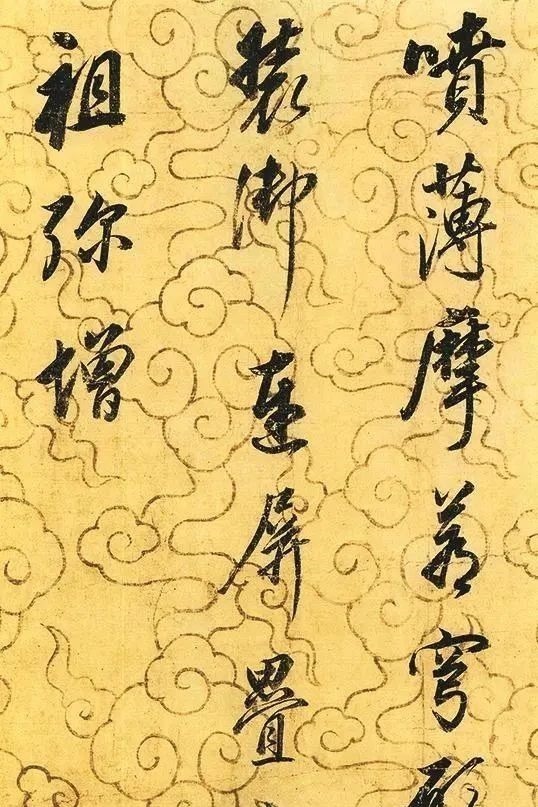 噴薄摩蒼穹
御連屏疊
祖弥增